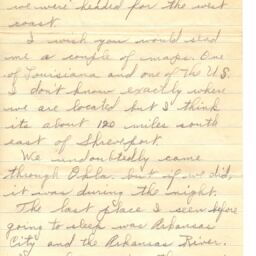 we were headed for the west
coast.
I wish you would send
me a couple of maps. One
of Louisiana and one of the U.S.
I don't know exactly where
we are located but I think
its about 120 miles south
east of Shreveport.
We undoubtedly came
through Okla. but if we did,
it was during the night.
The last place I seen before
going to sleep was Arkansas
City and the Arkansas River.